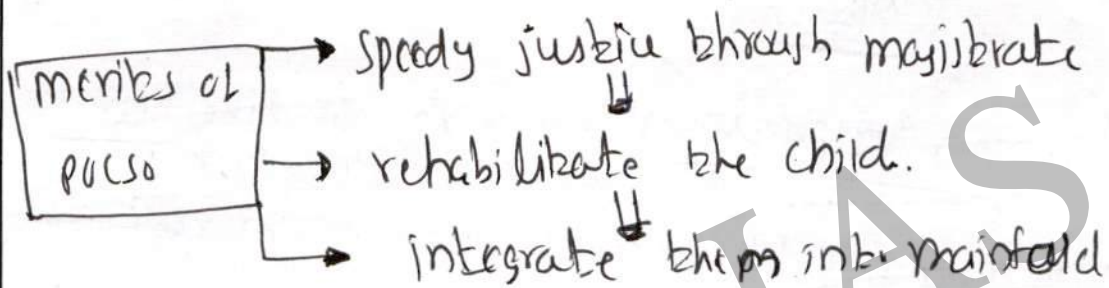 merits of
pocso
speedy justice through magistrate
rehabilitate the child.
integrate them into mainfold
IAS